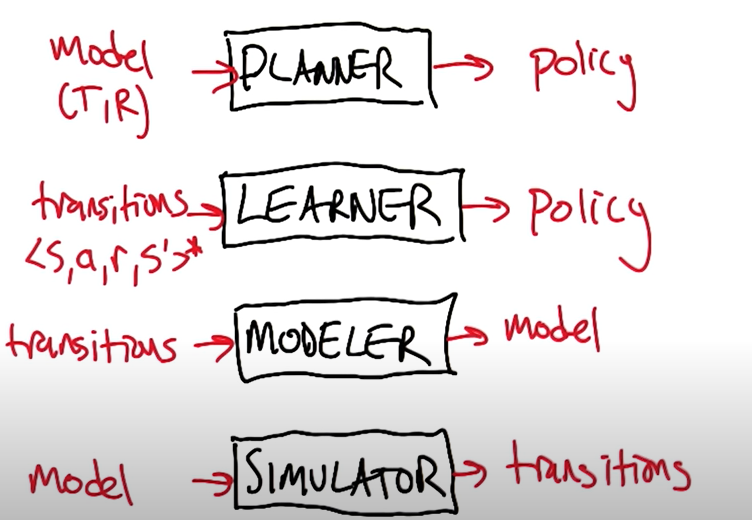 model → PLANNER → policy
(T,R)
transitions → LEARNER → policy
<s,a,r,s'>*
transitions → MODELER → model
model → SIMULATOR → transitions